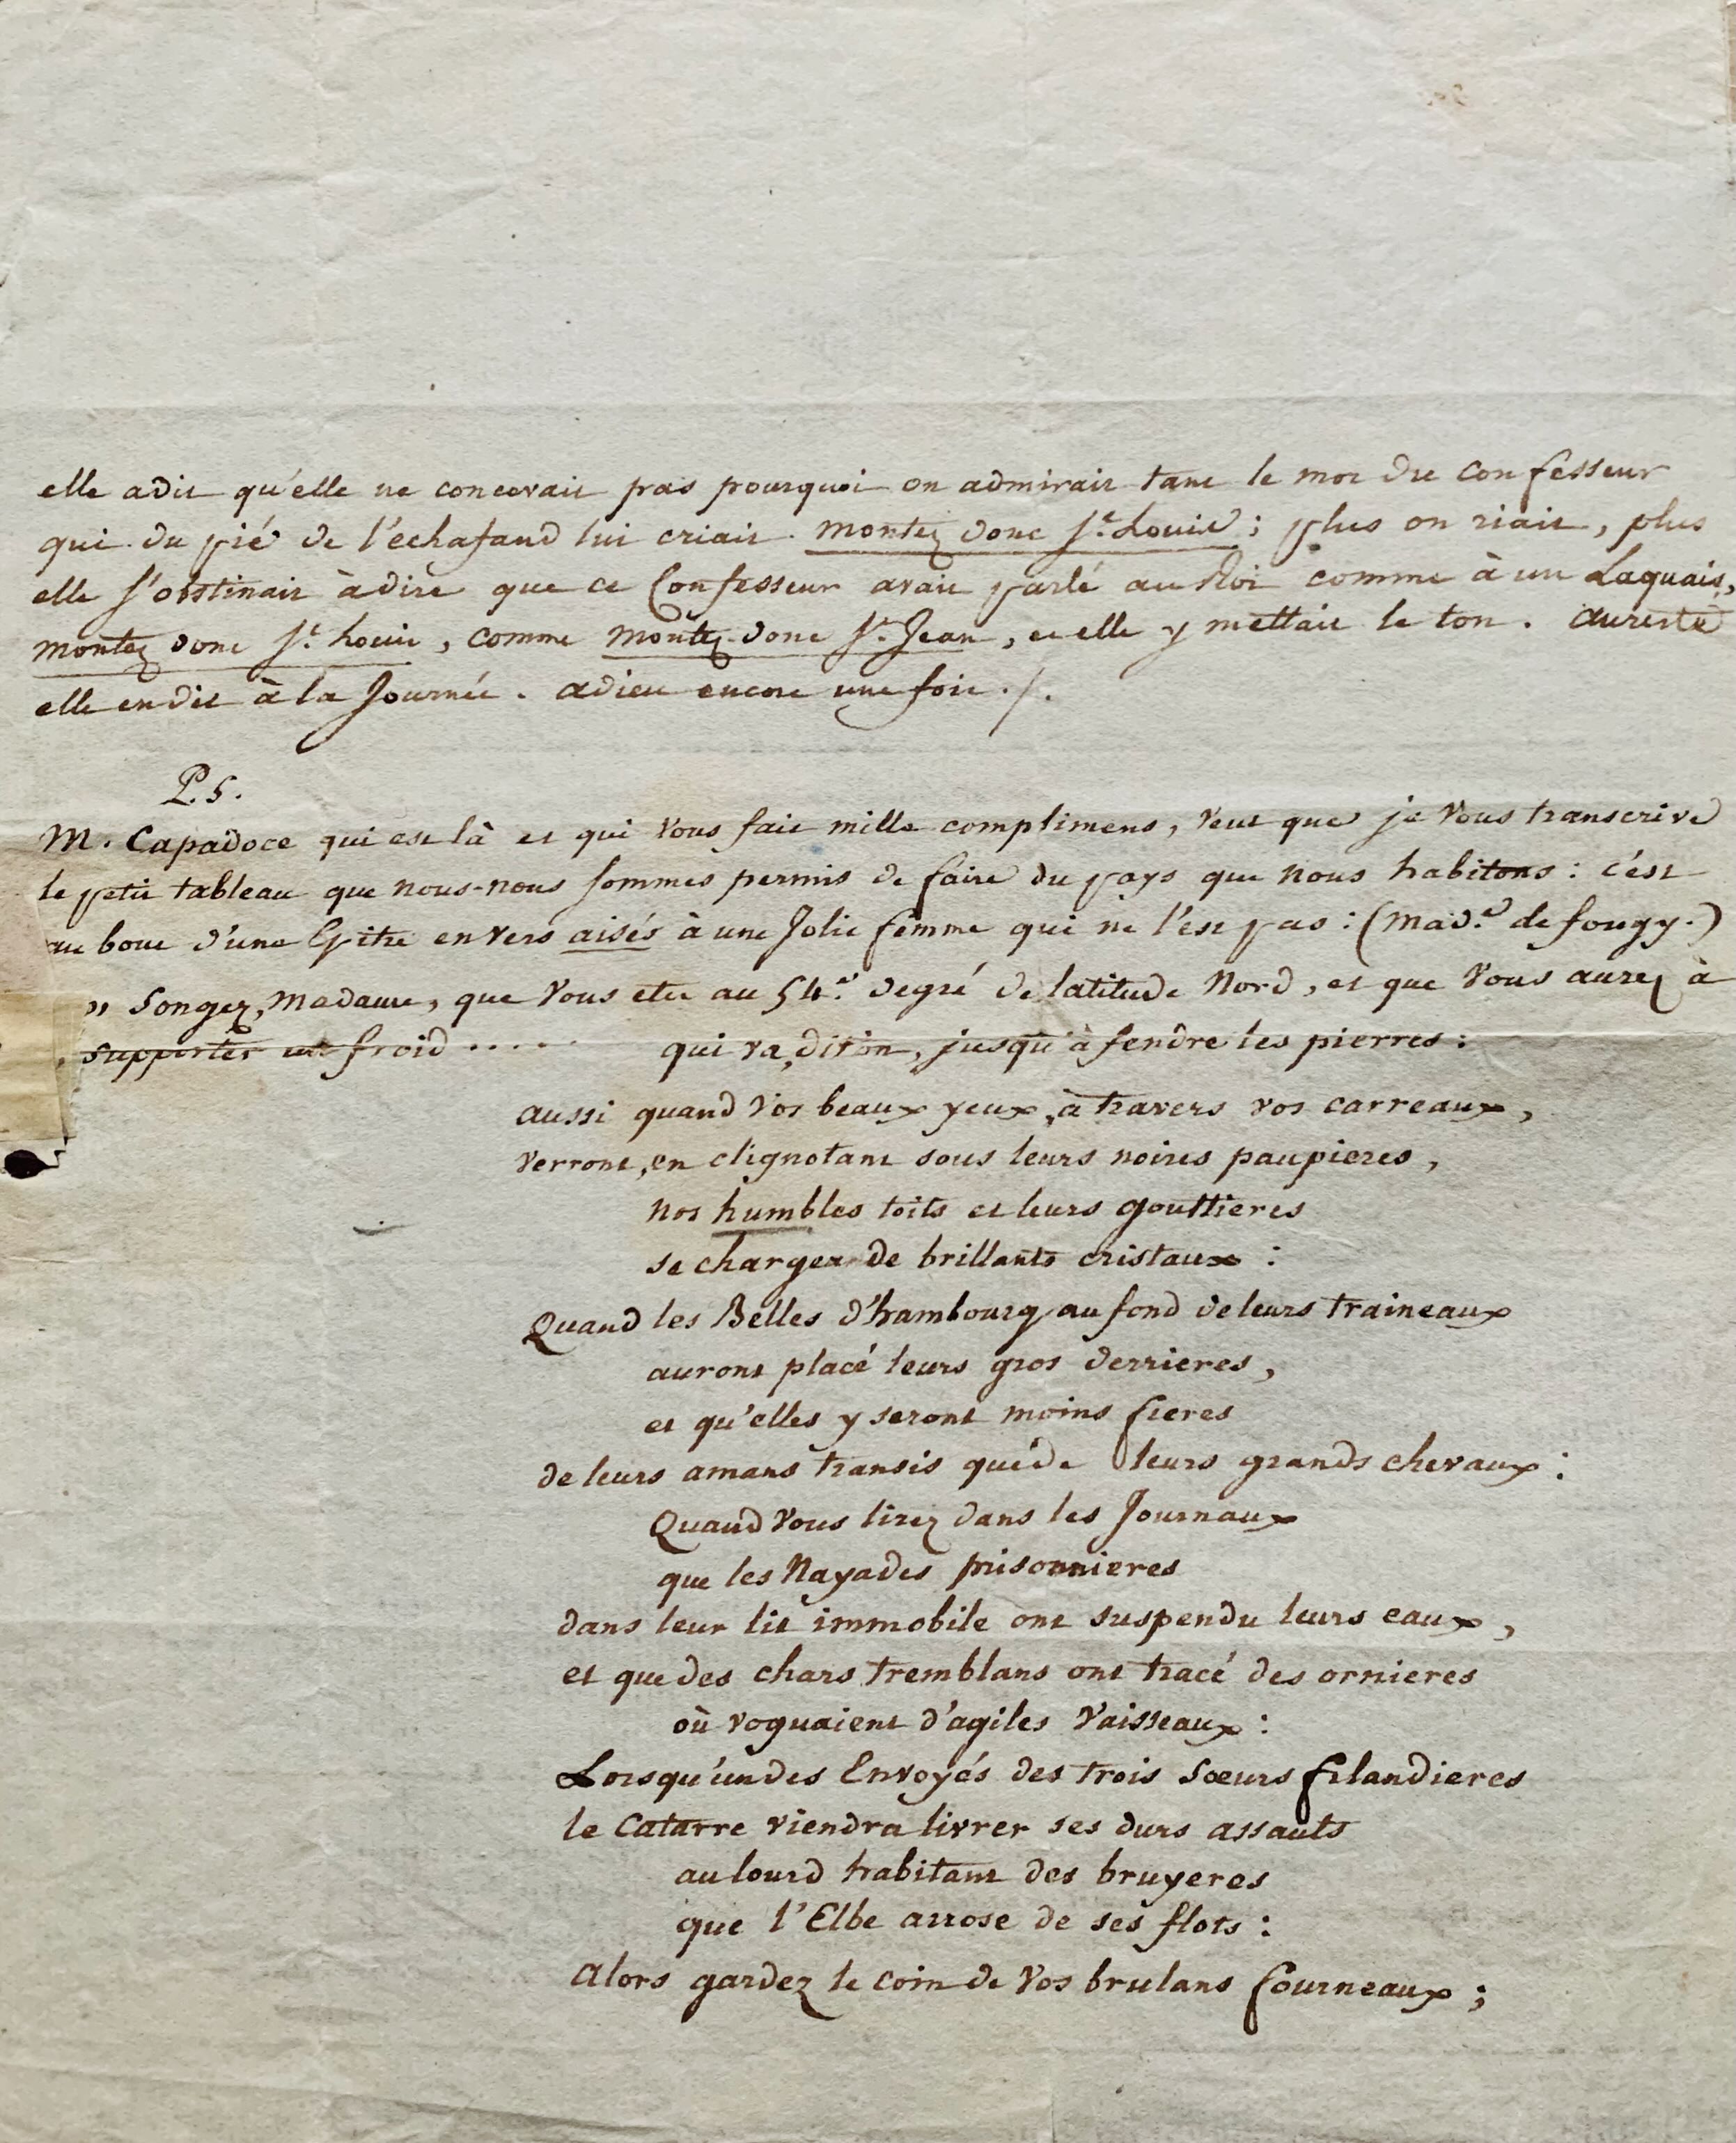 elle adit qu'elle ne concevait pas pourquoi on admirait tant le mot du confesseur
qui du pié de l'échafaud lui criait. montez donc St. Louis; plus on riait, plus
elle s'obstinait àdire que ce Confesseur avait parlé au Roi comme à un Laquais,
montez donc St. Louis, comme montez-donc St. Jean, et elle y mettait le ton. aureste
elle endit à la Journée. adieu encore une fois ./.
P.S.
M. Capadoce qui est là et qui vous fait mille complimens, veut que je vous transcrive
le petit tableau que nous-nous sommes permis de faire du pays que nous habitons: c'est
au bout d'une Epitre envers aisés à une Jolie femme qui ne l'est pas: (Made. de fougy.)
" Songez, Madame, que vous etes au 54e. degré de latitude Nord, et que vous aurez à
supporter un froid ..... qui va, diton, jusqu'à fendre les pierres:
aussi quand vos beaux yeux, à travers vos carreaux,
verront, en clignotant sous leurs noires paupieres,
nos humbles toits et leurs gouttieres
se charger de brillants cristaux:
Quand les Belles d'hambourg au fond deleurs traineaux
auront placé leurs gros derrieres,
et qu'elles y seront moins fieres
de leurs amans transis que de leurs grands chevaux:
Quand vous lirez dans les Journaux
que les Nayades prisonnieres
dans leur lit immobile ont suspendu leurs eaux,
et que des chars tremblans ont tracé des ornieres
où voguaient d'agiles vaisseaux:
Lorsqu'undes Envoyés des trois Sœurs filandieres
le Catarre viendra livrer ses durs assauts
aulourd habitant des bruyeres
que l'Elbe arrose de ses flots:
Alors gardez le coin de vos brulans fourneaux;